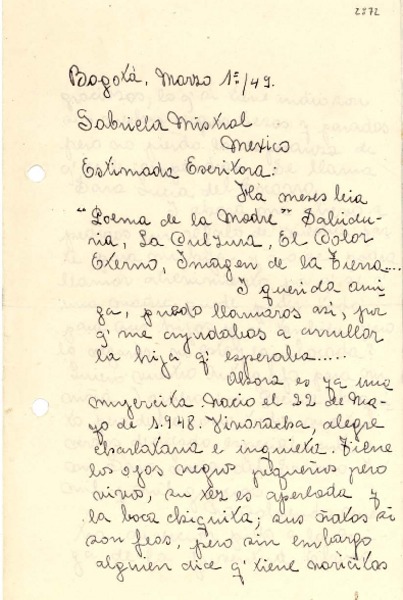 2872
Bogotá, Marzo 1º/49.
Gabriela Mistral
Mexico
Estimada Escritora:
Ha meses leia
"Poema de la Madre" Sabidu-
ria, La Cultura, El Dolor
Eterno, Imagen de la Tierra....
I querida ami-
ga, puedo llamaros asi, por
q' me ayudabas a arrullar
la hija q' esperaba.....
Ahora es ya una
mujercita. Nacio el 22 de Ma-
yo de 1.948. Vivaracha, alegre
charlatana e inquieta. Tiene
los ojos negros pequeños pero
vivos, su tez es aperlada y
la boca chiquita; sus ñatas si
son feas, pero sin embargo
alguien dice q' tiene naricitas